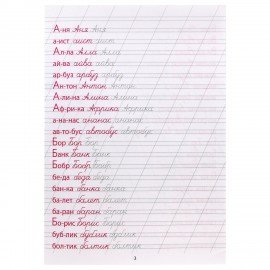 А-ня Аня Аня
а-ист аист аист
Ал-ла Алла Алла
ай-ва айва айва
ар-буз арбуз арбуз
Ан-тон Антон Антон
А-ли-на Алина Алина
Аф-ри-ка Африка Африка
а-на-нас ананас ананас
ав-то-бус автобус автобус
Бор бор бор
Банк банк банк
Бобр бобр бобр
бе-да беда беда
бан-ка банка банка
ба-лет балет балет
ба-ран баран баран
Бо-рис Борис Борис
буб-лик бублик бублик
бол-тик болтик болтик
3